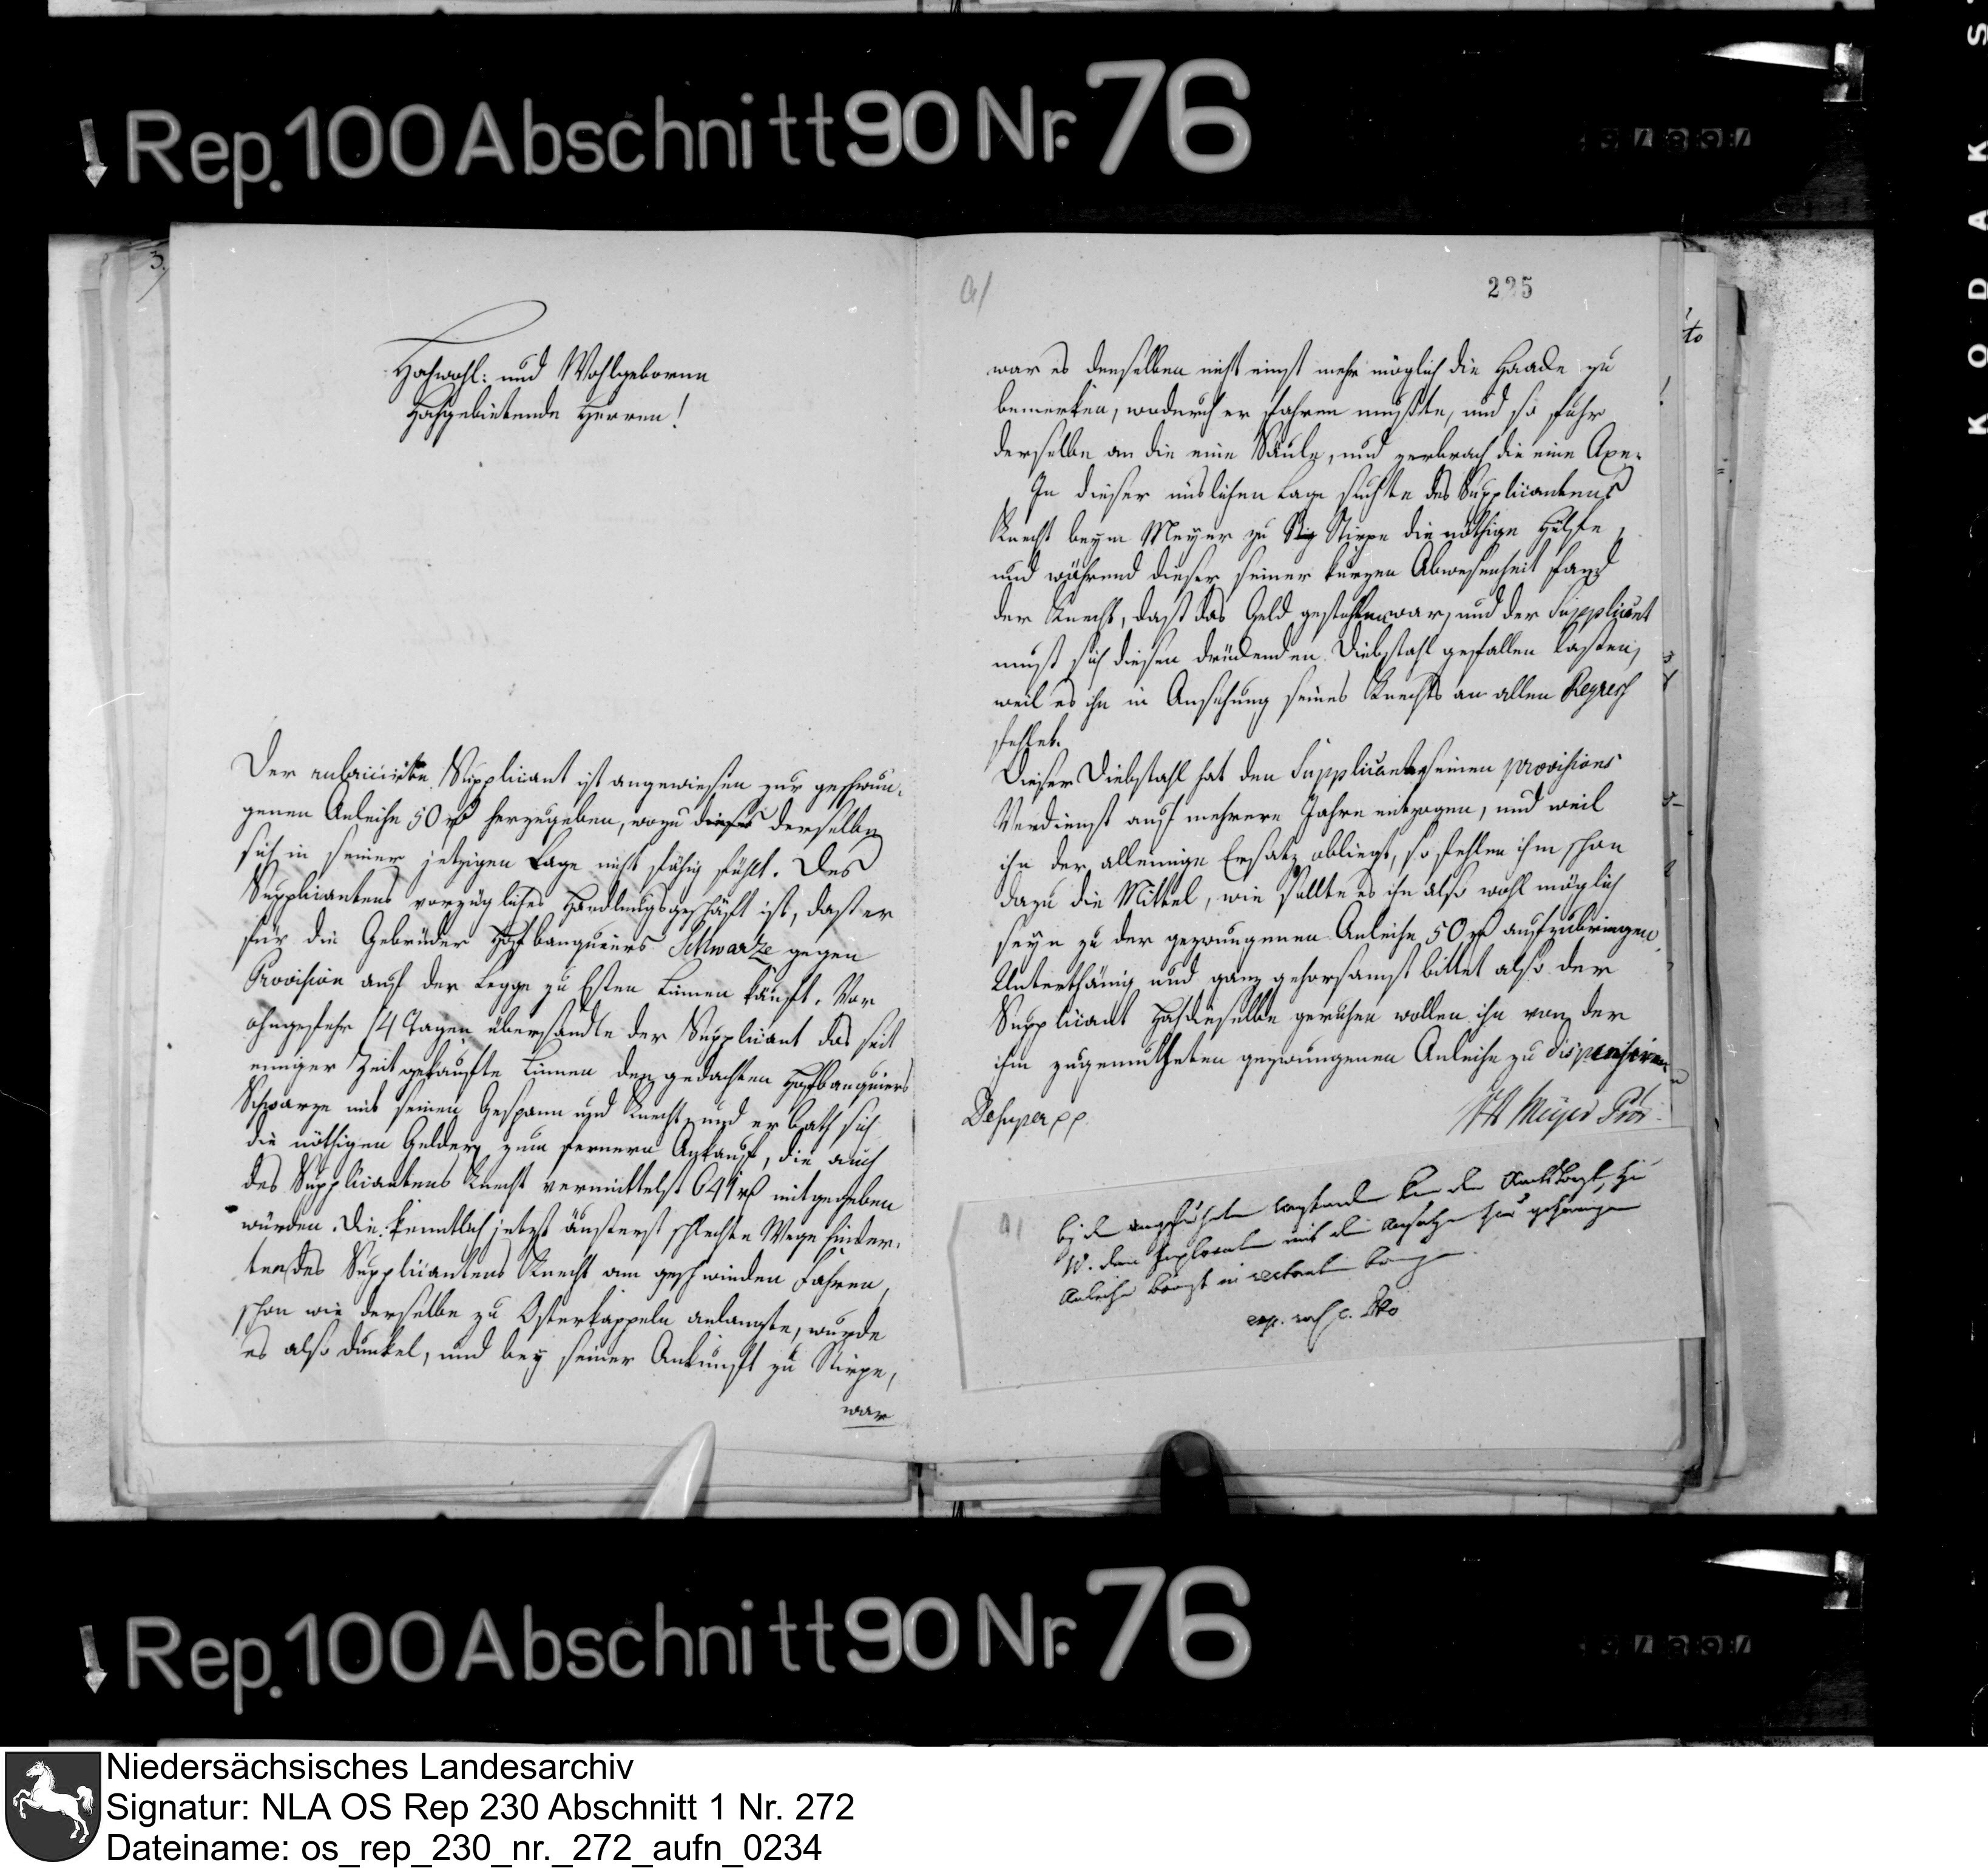 Rep. 100 Abschnitt 90 Nr. 76
3.
Hochwohl: und Wohlgeborne
Hochgebietende Herren!
Der rubricirte Supplicant ist angewiesen zur gezwun-
genen Anleihe 50 rß herzugeben, wozu dieses derselbe
sich in seiner jetzigen Lage nicht fähig fühlt. Des
Supplicantens vorzügliches Handlungsgeschäft ist, daß er
für die Gebrüder Hofbanquiers Schwarze gegen
Provision auf der Legge zu Essen Linnen käuft. Vor
ohngefehr 14 Tagen übersandte der Supplicant das seit
einiger Zeit gekaufte Linnen den gedachten Hofbanquiers
Schwarze mit seinen Gespann und Knecht, und erbath sich
die nöthigen Gelder zum fernern Ankauf, die auch
des Supplicantens Knecht vermittelst 641 rß mitgegeben
würden. Die kenntlich jetzt äusserst schlechte Wege hinder-
ten des Supplicantens Knecht am geschwinden Fahren,
schon wie derselbe zu Osterkappeln anlangte, wurde
es also dunkel, und bey seiner Ankunft zu Stirpe,
war
225
war es denselben nicht einst mehr möglich die Haade zu
bemerken, wodurch er fahren mußte, und so fuhr
derselbe an die eine Säule, und zerbrach die eine Axe.
In dieser mislichen Lage suchte des Supplicantens
Knecht beym Meyer zu Stirpe die nöthige Hülfe,
und während dieser seiner kurzen Abwesenheit fand
der Knecht, daß das Geld gestohlen war, und der Supplicant
muß sich diesen drückenden Diebstahl gefallen lassen,
weil es ihn in Ansehung seines Knechts an allen Regress
fehlet.
Dieser Diebstahl hat den Supplicanten seinen provisions
Verdienst auf mehrere Jahre entzogen, und weil
ihn der alleinige Ersatz obliegt, so fehlen ihm schon
dazu die Mittel, wie sollte es ihn also wohl möglich
seyn zu der gezwungenen Anleihe 50 rß aufzubringen
Unterthänig und ganz gehorsamst bittet also der
Supplicant Hochdieselbe geruhen wollen ihn von der
ihm zugemutheten gezwungenen Anleihe zu dispensiren
Desuper pp
Meyer Pror.
bey angeführten Umständen den Amtsvogt zu
W. den mit dem Ansatze zur gezwungenen
Anleihe
Rep. 100 Abschnitt 90 Nr. 76
KODAK S
Niedersächsisches Landesarchiv
Signatur: NLA OS Rep 230 Abschnitt 1 Nr. 272
Dateiname: os_rep_230_nr._272_aufn_0234